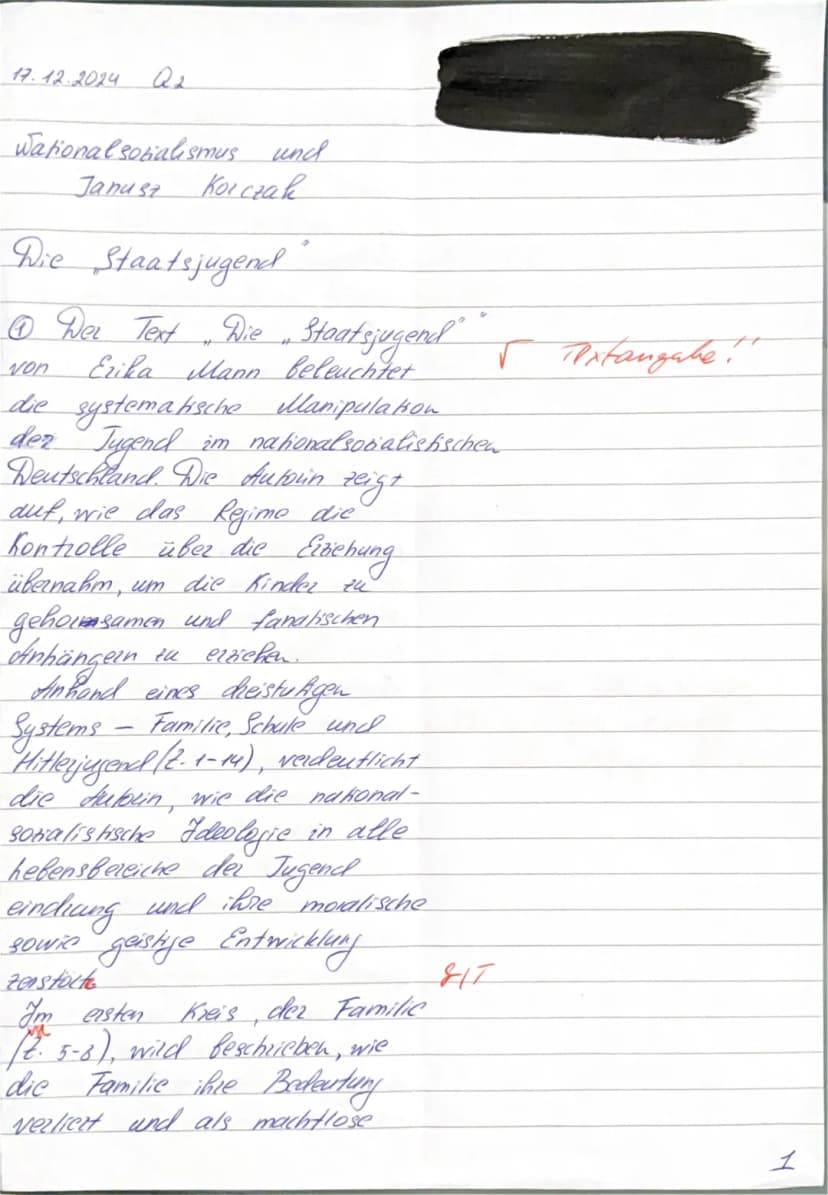 17.12.2024 Q2
Nationalsozialismus und
Janusz Korczak
Die „Staatsjugend"
① Der Text „Die „Staatsjugend" "
√ Textangabe!!
von Erika Mann beleuchtet
die systematische Manipulation
der Jugend im nationalsozialistischen
Deutschland. Die Autorin zeigt
auf, wie das Regime die
Kontrolle über die Erziehung
übernahm, um die Kinder zu
gehorsamen und fanatischen
Anhängern zu erziehen.
Anhand eines dreistufigen
Systems – Familie, Schule und
Hitlerjugend (Z. 1-14), verdeutlicht
die Autorin, wie die national-
sozialistische Ideologie in alle
Lebensbereiche der Jugend
eindrang und ihre moralische
sowie geistige Entwicklung
zerstörte
Im ersten Kreis, der Familie
(Z. 5-8), wird beschrieben, wie
die Familie ihre Bedeutung
verliert und als machtlose
1